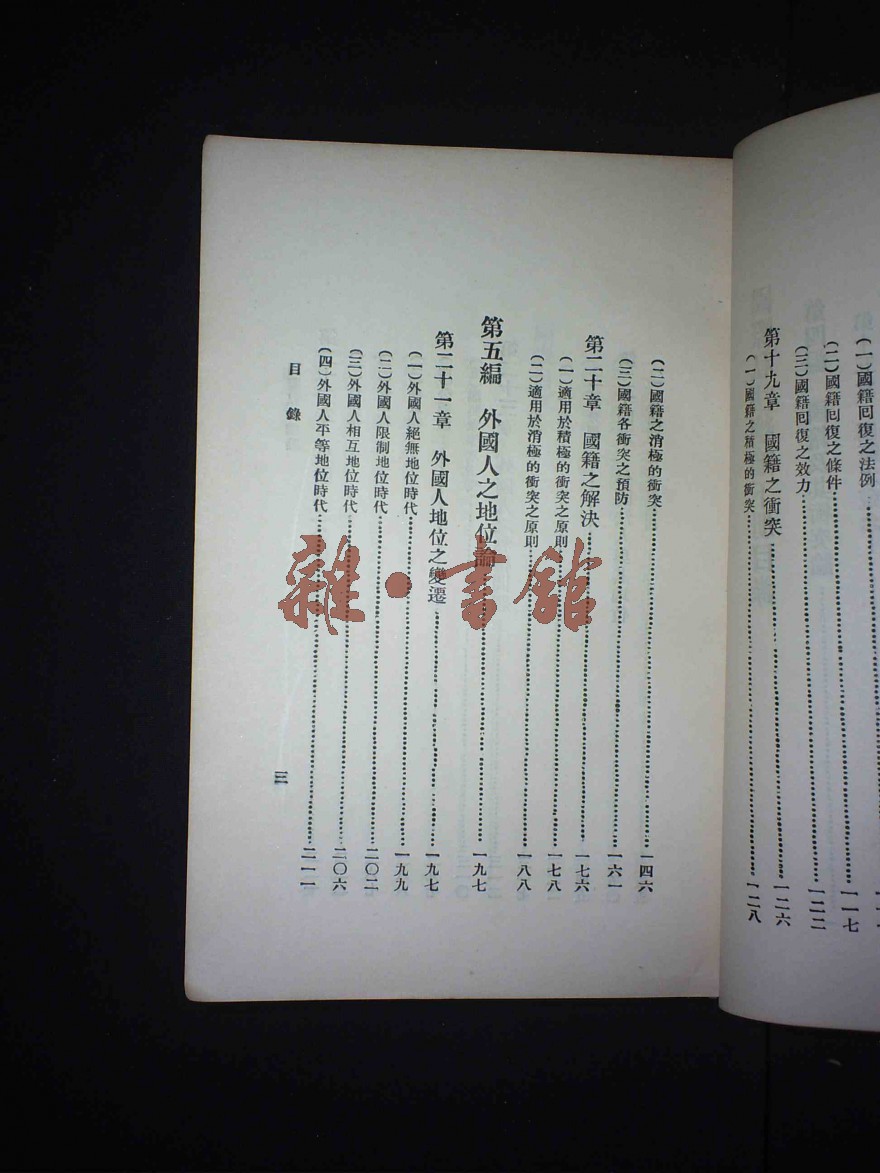 (一)國籍回復之法例……一一七
(二)國籍回復之條件……一二二
(三)國籍回復之效力
第十九章 國籍之衝突……一二六
(一)國籍之積極的衝突……一二八
(二)國籍之消極的衝突……一四六
(三)國籍各衝突之預防……一六一
第二十章 國籍之解決……一七六
(一)適用於積極的衝突之原則……一七八
(二)適用於消極的衝突之原則……一八八
第五編 外國人之地位論……一九七
第二十一章 外國人地位之變遷……一九七
(一)外國人絕無地位時代……一九九
(二)外國人限制地位時代……二〇二
(三)外國人相互地位時代……二〇六
(四)外國人平等地位時代……二一一
目錄
三
雜·書館